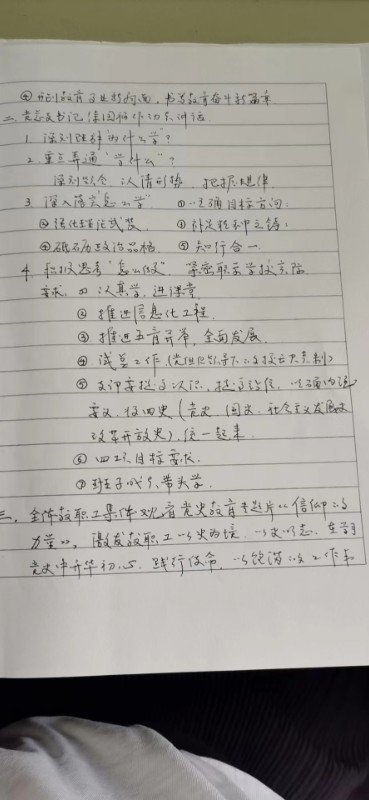 ④ 开创教育事业新局面,书写教育奋斗新篇章
二、党总支书记 作 讲话
1. 深刻理解"为什么学"?
2. 重点弄通"学什么"?
深刻领会、认清形势、把握规律
3. 深入落实"怎么学" ① 明确目标方向;
② 强化理论武装 ③ 补足精神之钙;
④ 砥砺政治品格 ⑤ 知行合一
4. 积极思考"怎么做" 紧密联系学校实际
要求 ① 认真学、进课堂
② 推进信息化工程
③ 推进五育并举,全面发展
④ 工作(党组织领导下的校长负责制)
⑤ 提高认识,提高站位,明确
要义,将四史(党史、国史、社会主义发展史
改革开放史)统一起来
⑥ 四 目标要求
⑦ 班子成员带头学
三、全体教职工集体观看党史教育专题片《信仰的
力量》,激发教职工以史为镜、以史明志,在学习
党史中升华初心、践行使命,以饱满的工作